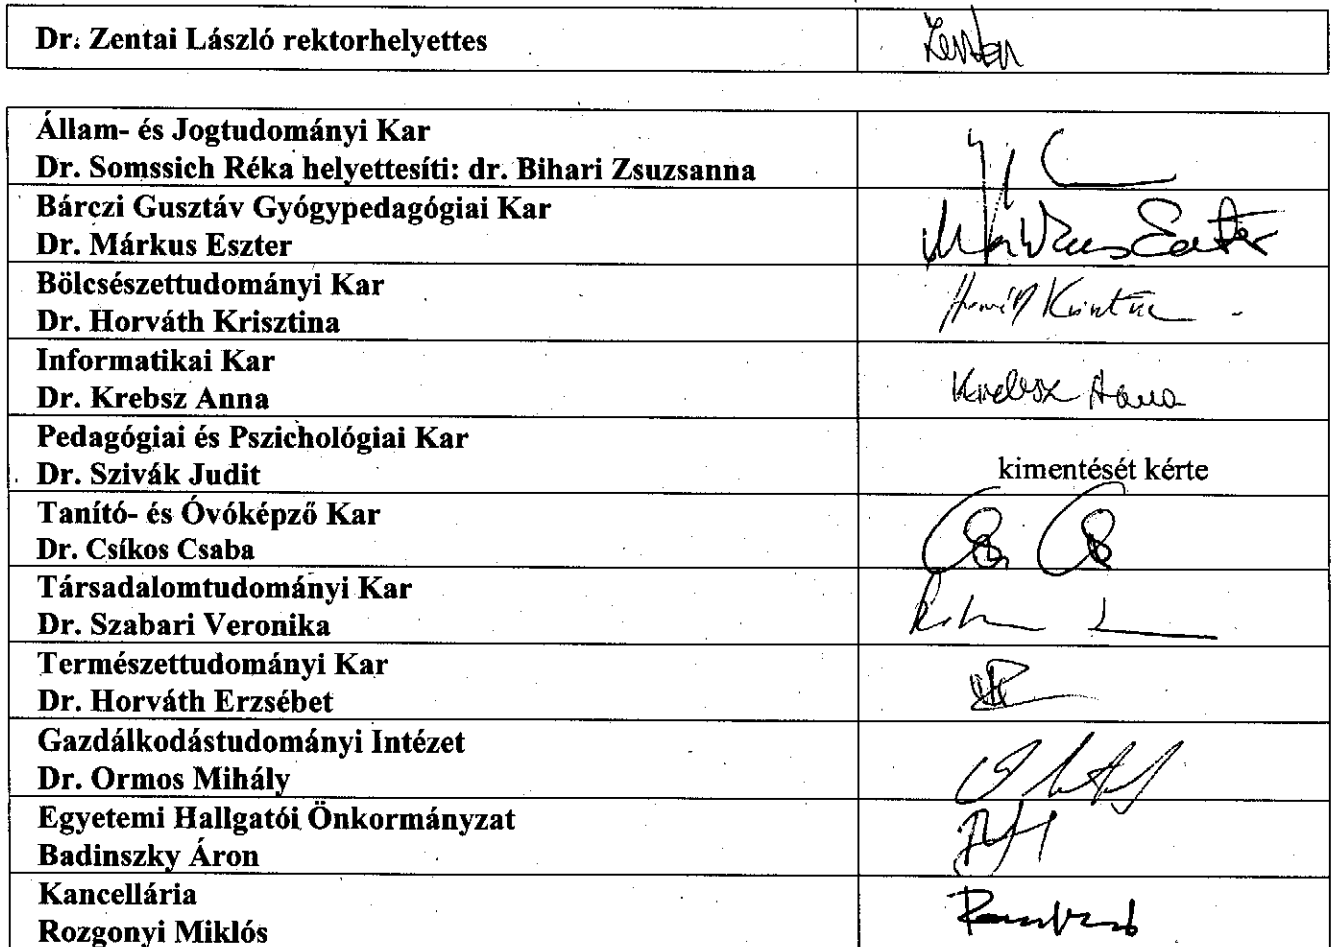 Dr. Zentai László rektorhelyettes
Zentai
Állam- és Jogtudományi Kar
Dr. Somssich Réka helyettesíti: dr. Bihari Zsuzsanna
Bárczi Gusztáv Gyógypedagógiai Kar
Dr. Márkus Eszter
Márkus Eszter
Bölcsészettudományi Kar
Dr. Horváth Krisztina
Horváth Krisztina
Informatikai Kar
Dr. Krebsz Anna
Krebsz Anna
Pedagógiai és Pszichológiai Kar
Dr. Szivák Judit
kimentését kérte
Tanító- és Óvóképző Kar
Dr. Csíkos Csaba
Társadalomtudományi Kar
Dr. Szabari Veronika
Természettudományi Kar
Dr. Horváth Erzsébet
Gazdálkodástudományi Intézet
Dr. Ormos Mihály
Egyetemi Hallgatói Önkormányzat
Badinszky Áron
Kancellária
Rozgonyi Miklós